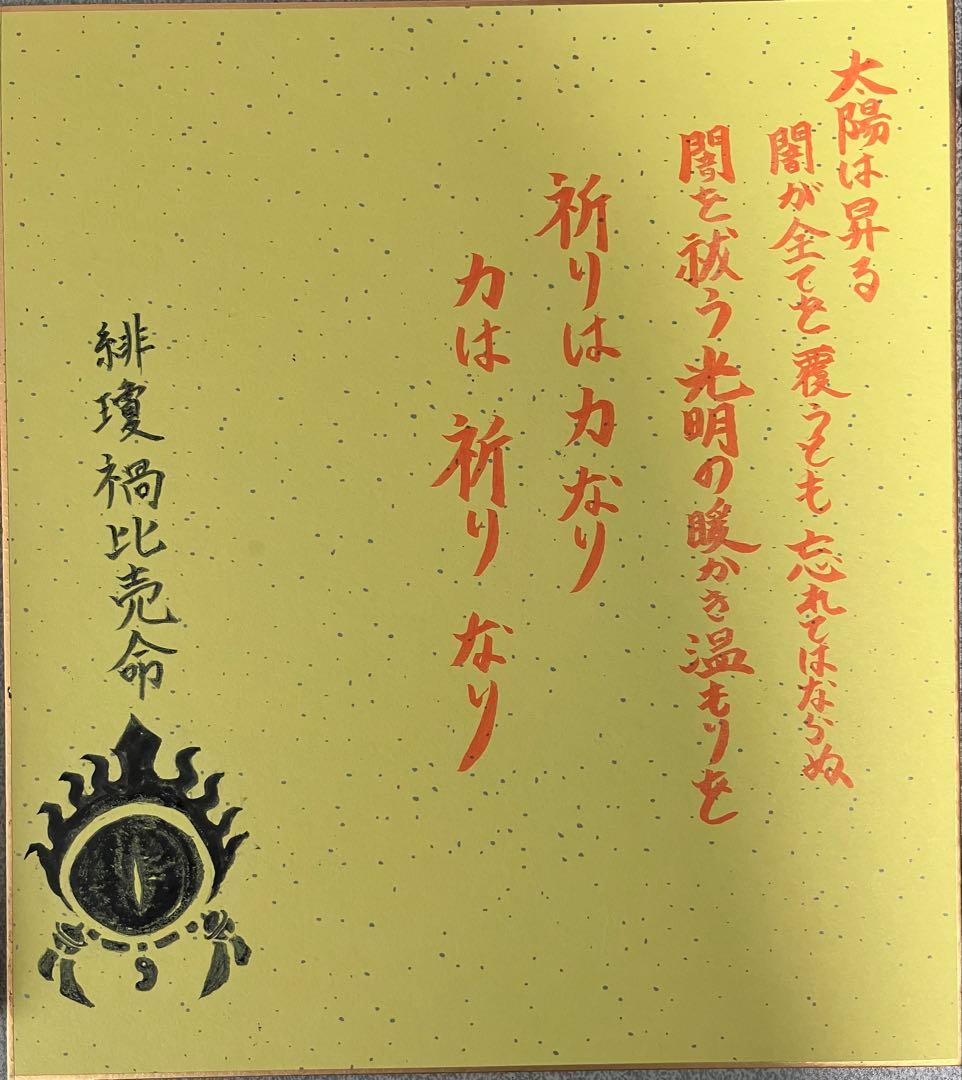 太陽は昇る
闇が全てを覆うとも忘れてはならぬ
闇を祓う光明の暖かき温もりを
祈りは力なり
力は祈りなり
緋瓊禍比売命